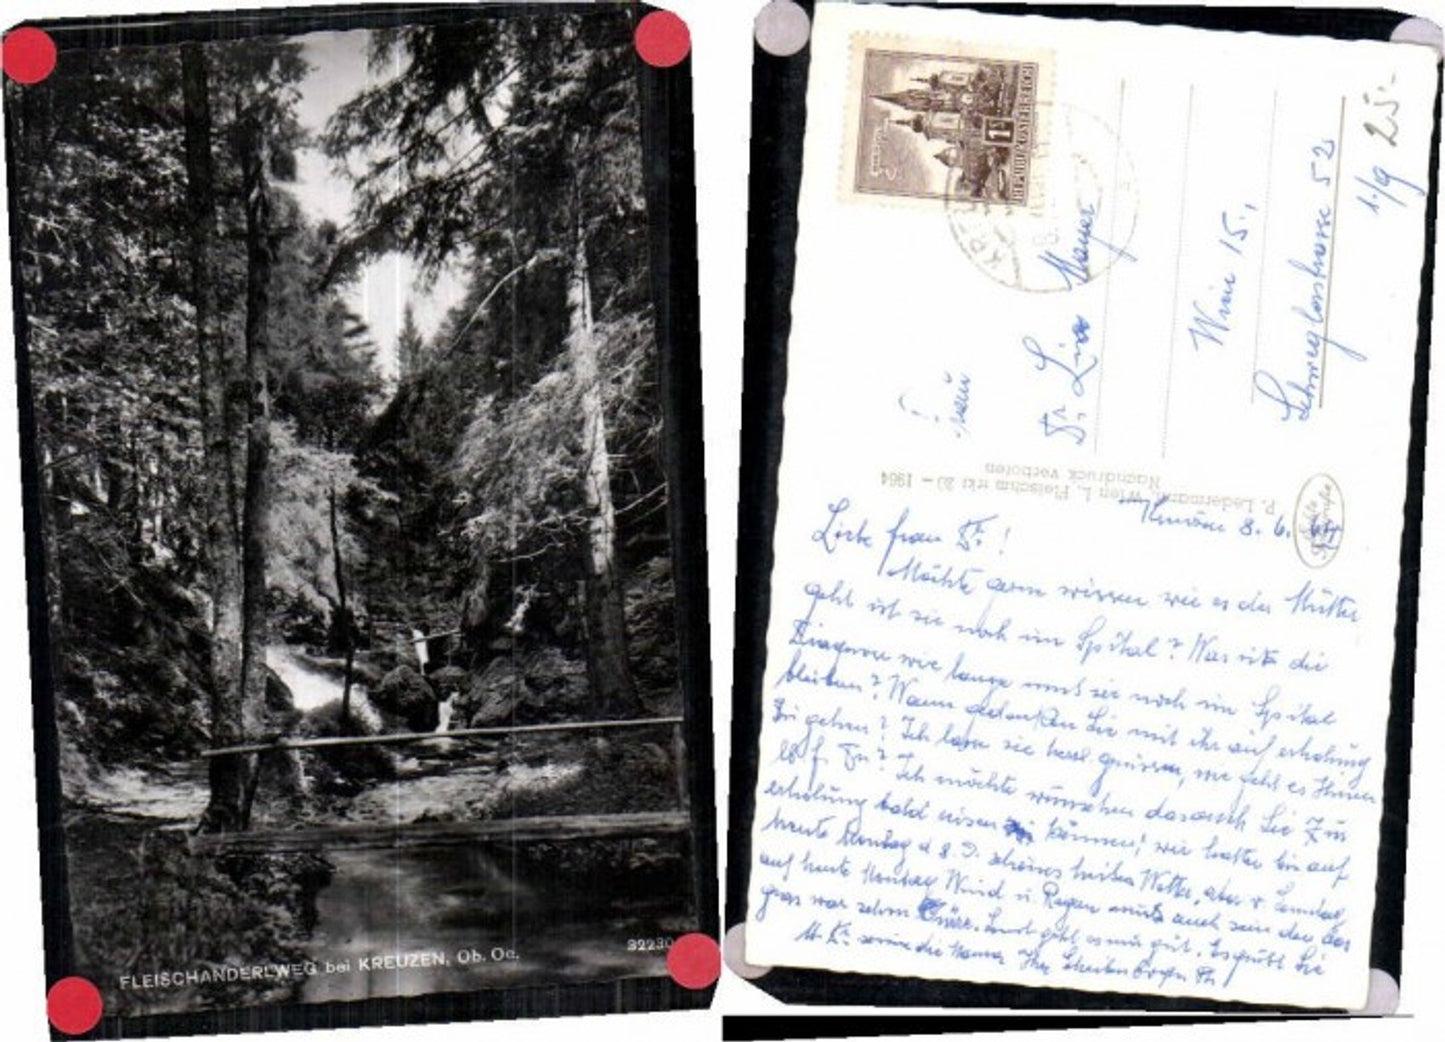 FLEISCHANDERLWEG bei KREUZEN, Ob. Oe.
32230
REPUBLIK ÖSTERREICH
1
25.-
1./9
Frau
Dr. Lisa Mayer
Wien 15.,
Schweglerstrasse 52
P. Ledermann, Wien I, Fleischmarkt 20 – 1964
Nachdruck verboten
Echte
Kreuzen 8. 6.
Liebe Frau Dr!
Möchte gern wissen wie es der Mutter
geht ist sie noch im Spital? Was ist die
Diagnose wie lange muß sie noch im Spital
bleiben? Wann gedenken Sie mit ihr auf erholung
Zu gehen? Ich lasse sie herzl. grüssen, wie geht es Ihnen
Ich möchte wünschen das auch Sie Zur
erholung bald reisen können! wir hatten bis auf
heute Montag d 8. schönes heißes Wetter, aber
auf heute Montag Wind u. Regen muß auch sein den das
gras war schon dürr. Sonst geht es mir gut. Es grüßt Sie